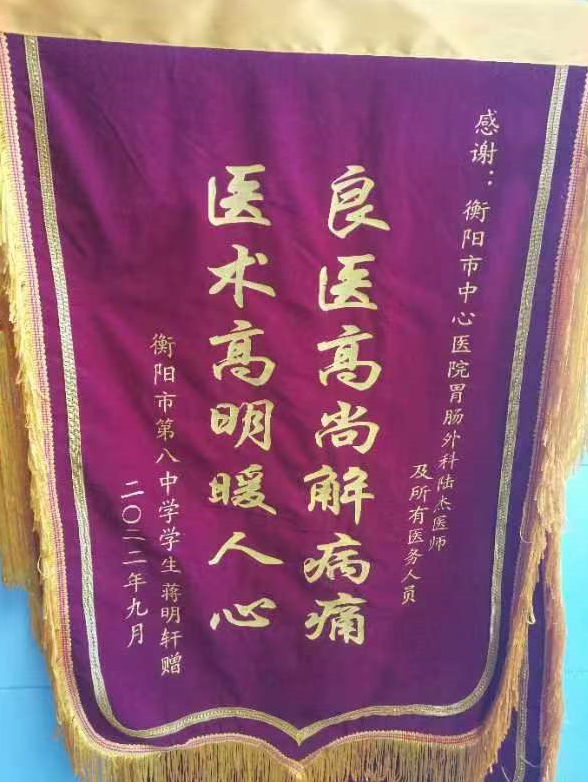 感谢：衡阳市中心医院胃肠外科陆杰医师
及所有医务人员
良医高尚解病痛
医术高明暖人心
衡阳市第八中学学生蒋明轩赠
二〇二二年九月